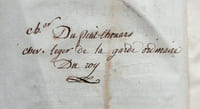 ch.er Du petit thouars
cher. leger de la garde ordinaire
Du roy